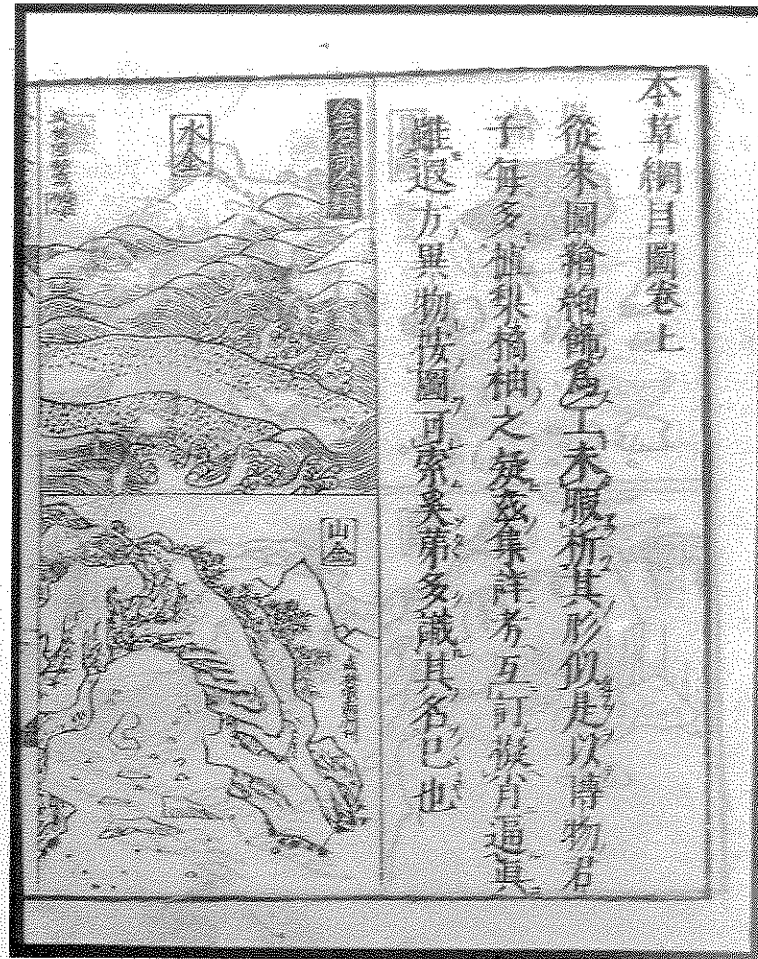 本草綱目圖卷上
從來圖繪絢飾爲工未暇析其形似是以博物君
子每多樝梨橘柚之疑茲集詳考互訂擬肖逼眞
雖遐方異物按圖可索奚第多識其名已也
水金
山金